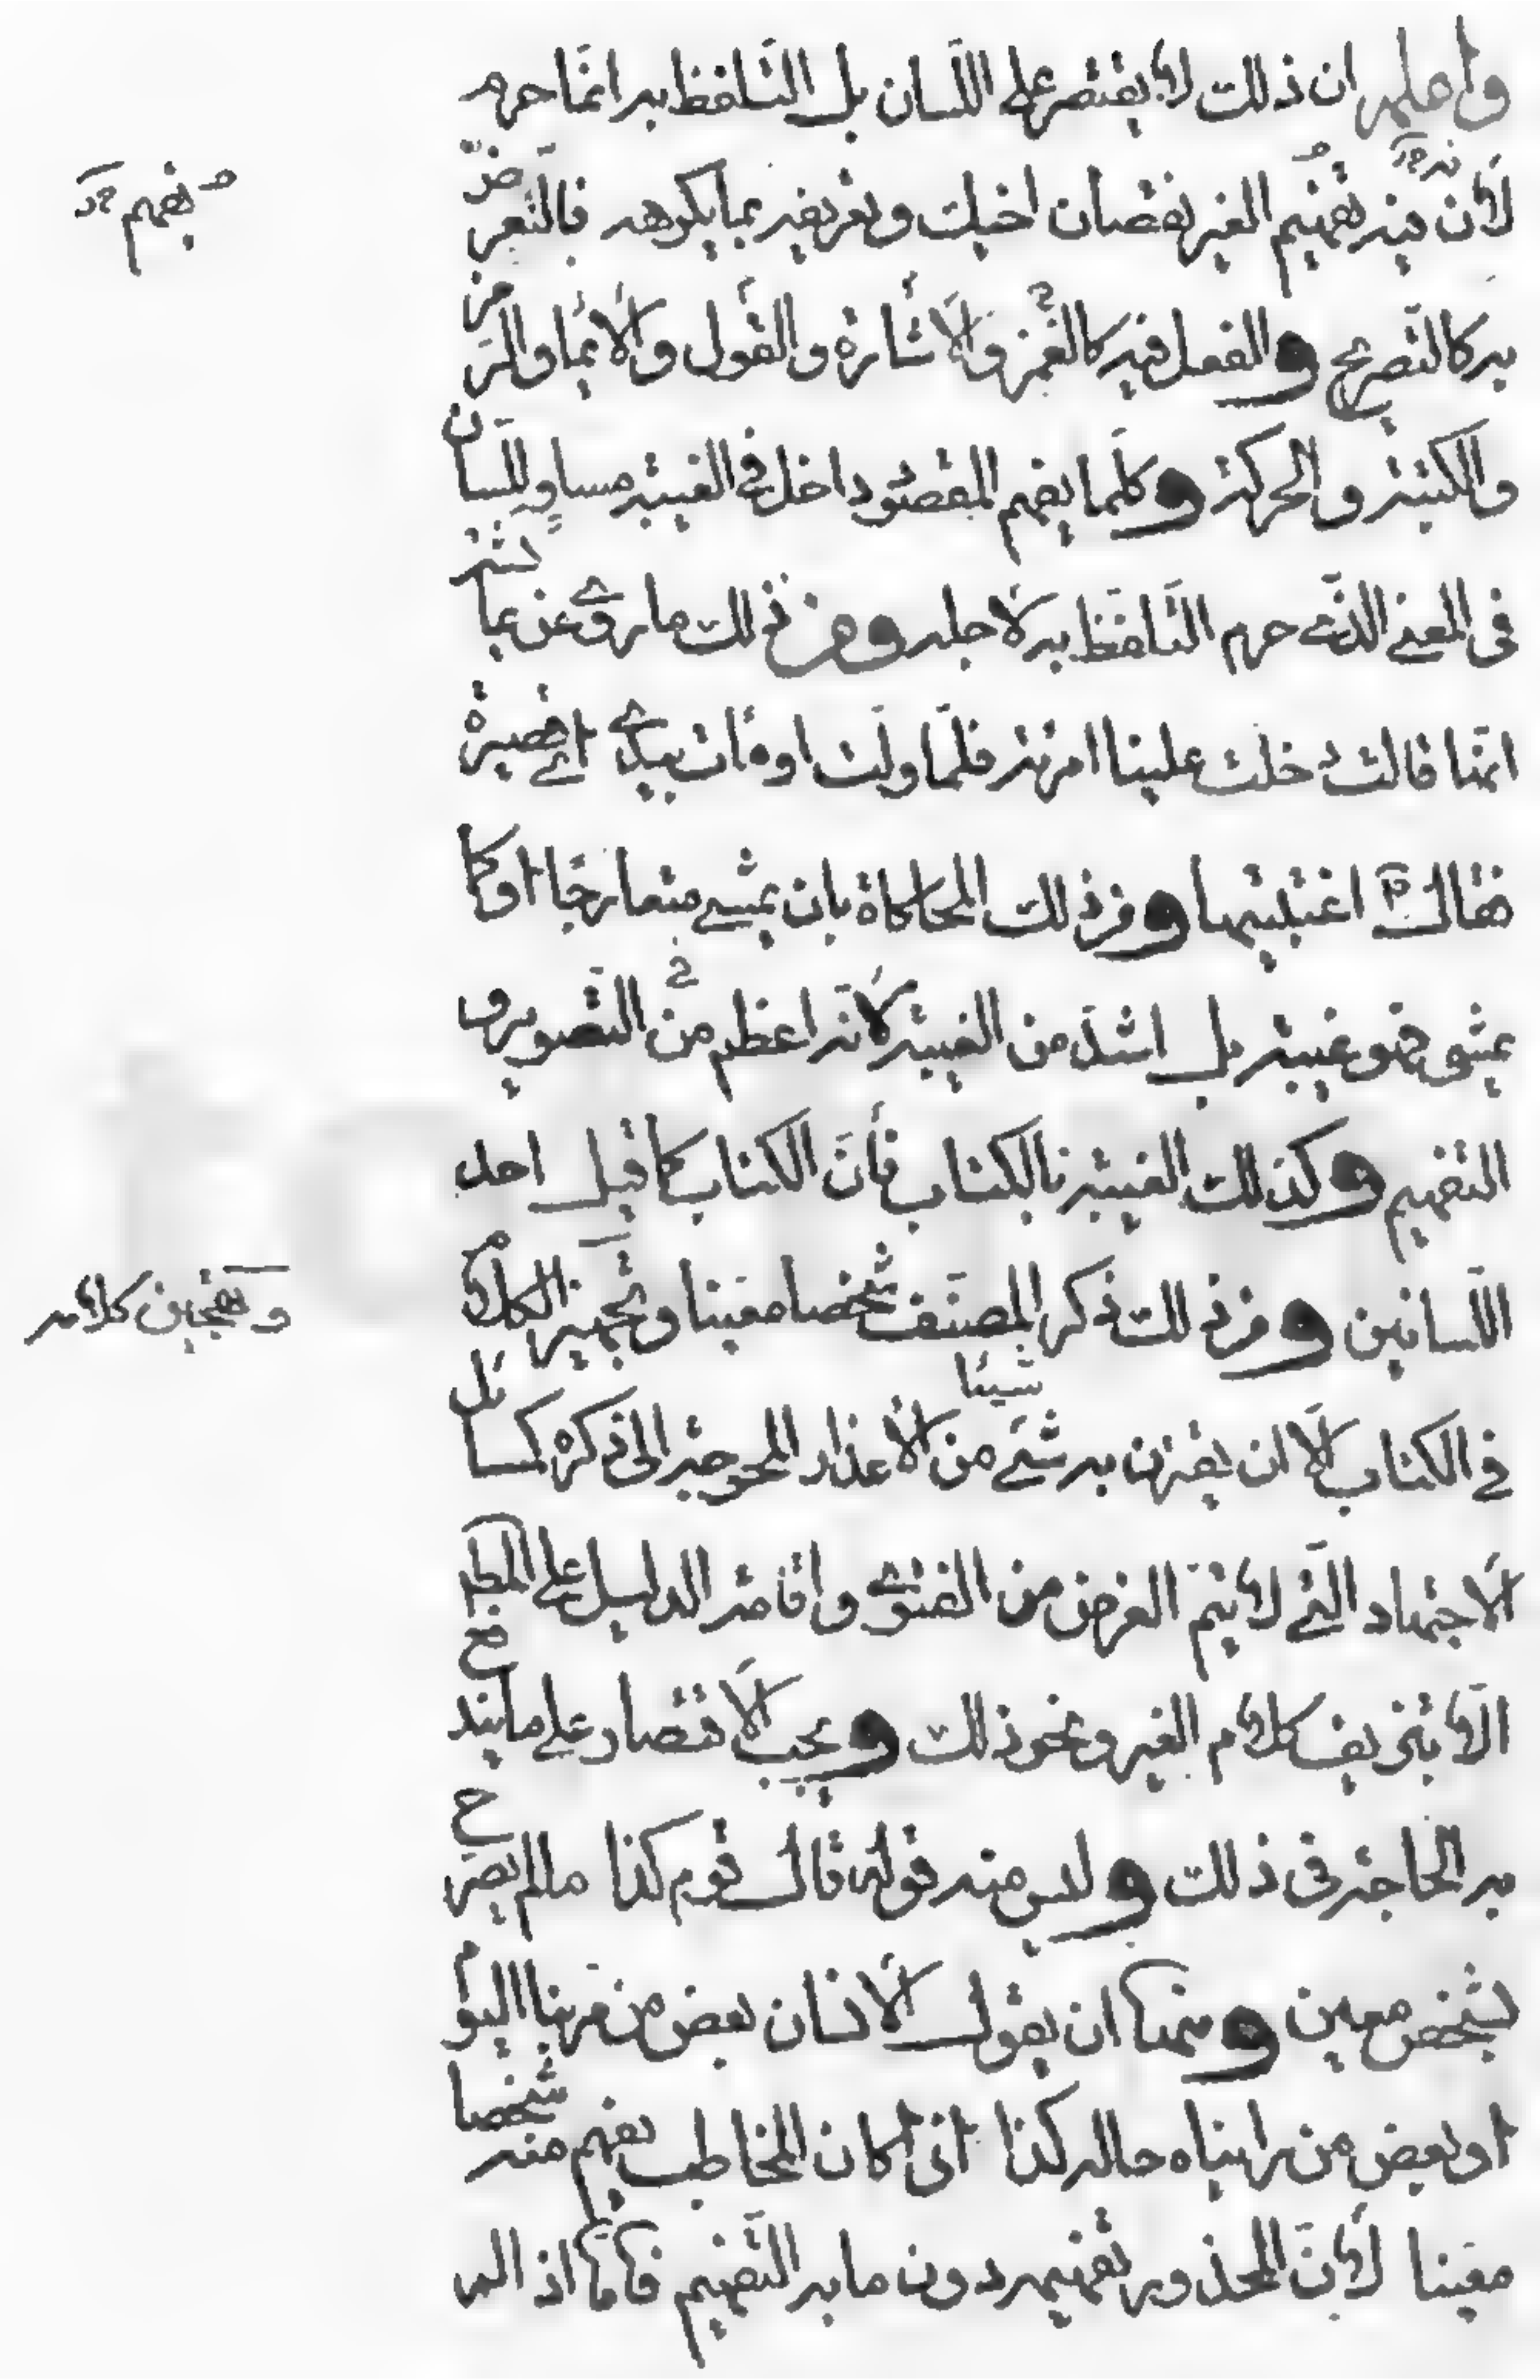 واعلم ان ذلك لا يقتصر على اللسان بل التلفظ به انما حرم
لأن فيه تفهيم الغير نقصان اخيك وتعريفه بما يكرهه فالتعريض
به كالتصريح والفعل فيه كالغمز والاشارة والقول والايما والرمز
والكتبة والحركة وكلما يفهم المقصود داخل في الغيبة مساو للسان
في المعنى الذي حرم التلفظ به لاجله ومن ذلك ما روي عن عايشة
انها قالت دخلت علينا امرئة فلما ولت اومأت بيدي اي قصيرة
فقال ص اغتبتيها ومن ذلك المحاكاة بان يمشي متعارجا او كما
يمشي فهو غيبة بل اشد من الغيبة لانه اعظم من في التصوير و
التفهيم وكذلك الغيبة بالكتاب فأن الكتاب كما قيل احد
اللسانين ومن ذلك ذكر المصنف شخصا معينا وتهجين الكلام
في الكتاب الا ان يقترن به شيئا شئ من الأعذار المحوجة الى ذكره كمسائل
الاجتهاد التي لا يتم الغرض من الفتوى واقامة الدليل على المط
الا بتزييف كلام الغير ونحو ذلك ويجب الاقتصار على ما يندفع
به الحاجة في ذلك وليس منه قوله قال قوم كذا ما لم يصرح
بشخص معين ومنها ان يقول الانسان بعض من مر بنا اليوم
او بعض من رايناه حاله كذا اذا كان المخاطب يفهم منه شخصا
معينا لأن المحذور تفهيمه دون ما به التفهيم فأما اذا لم
يفهم
وتهجين كلامه